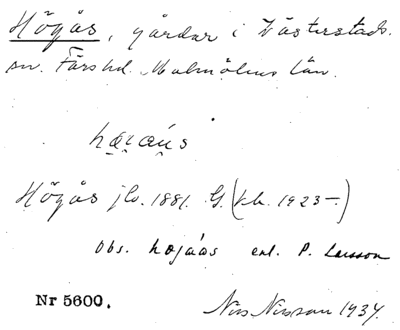 Högås, gårdar i Västerstads
sn. Färs hd. Malmöhus län.
Högås jb. 1881. G. (kb. 1923-)
Obs. hojáas enl. P. Larsson
Nr 5600. Nils Nilsson 1934.